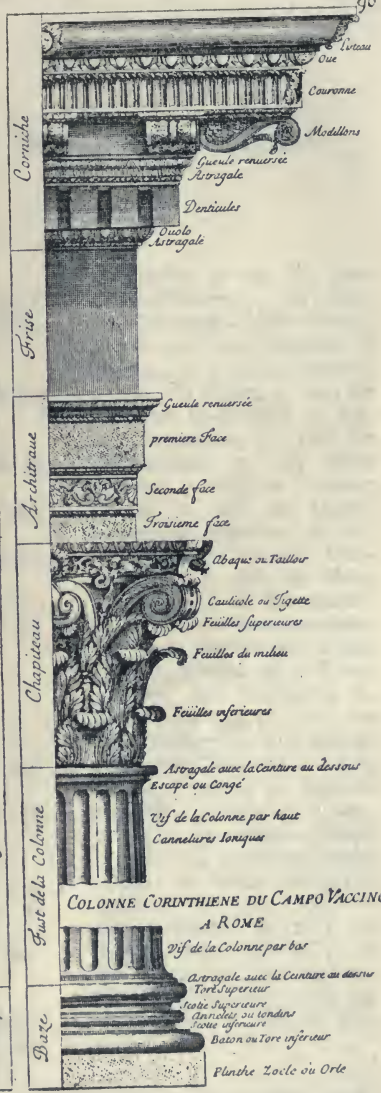 90
Listeau
Oue
Couronne
Modellons
Corniche
Gueule renuersée
Astragale
Denticules
Ouolo
Astragale
Frise
Gueule renuersée
premiere Face
Architraue
Seconde face
Troisieme face
Abaque ou Tailloir
Caulicole ou Tigette
Feuilles superieures
Chapiteau
Feuilles du milieu
Feuilles inferieures
Astragale auec la Ceinture au dessous
Escape ou Congé
Vif de la Colonne par haut
Cannelures Ioniques
Fust de la Colonne
COLONNE CORINTHIENE DU CAMPO VACCINO
A ROME
Vif de la Colonne par bas
Astragale auec la Ceinture au dessus
Tore Superieur
Scotie Superieure
Annelets ou tondins
Scotie inferieure
Baze
Baton ou Tore inferieur
Plinthe Zocle ou Orle